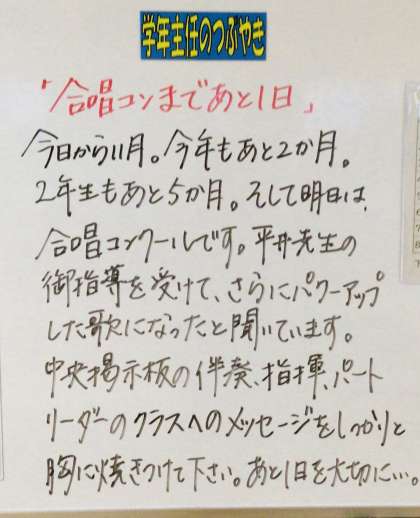 学年主任のつぶやき
「合唱コンまであと1日」
今日から11月。今年もあと2か月。
2年生もあと5か月。そして明日は、
合唱コンクールです。平井先生の
御指導を受けて、さらにパワーアップ
した歌になったと聞いています。
中央掲示板の伴奏、指揮、パート
リーダーのクラスへのメッセージをしっかりと
胸に焼きつけて下さい。あと1日を大切に…。